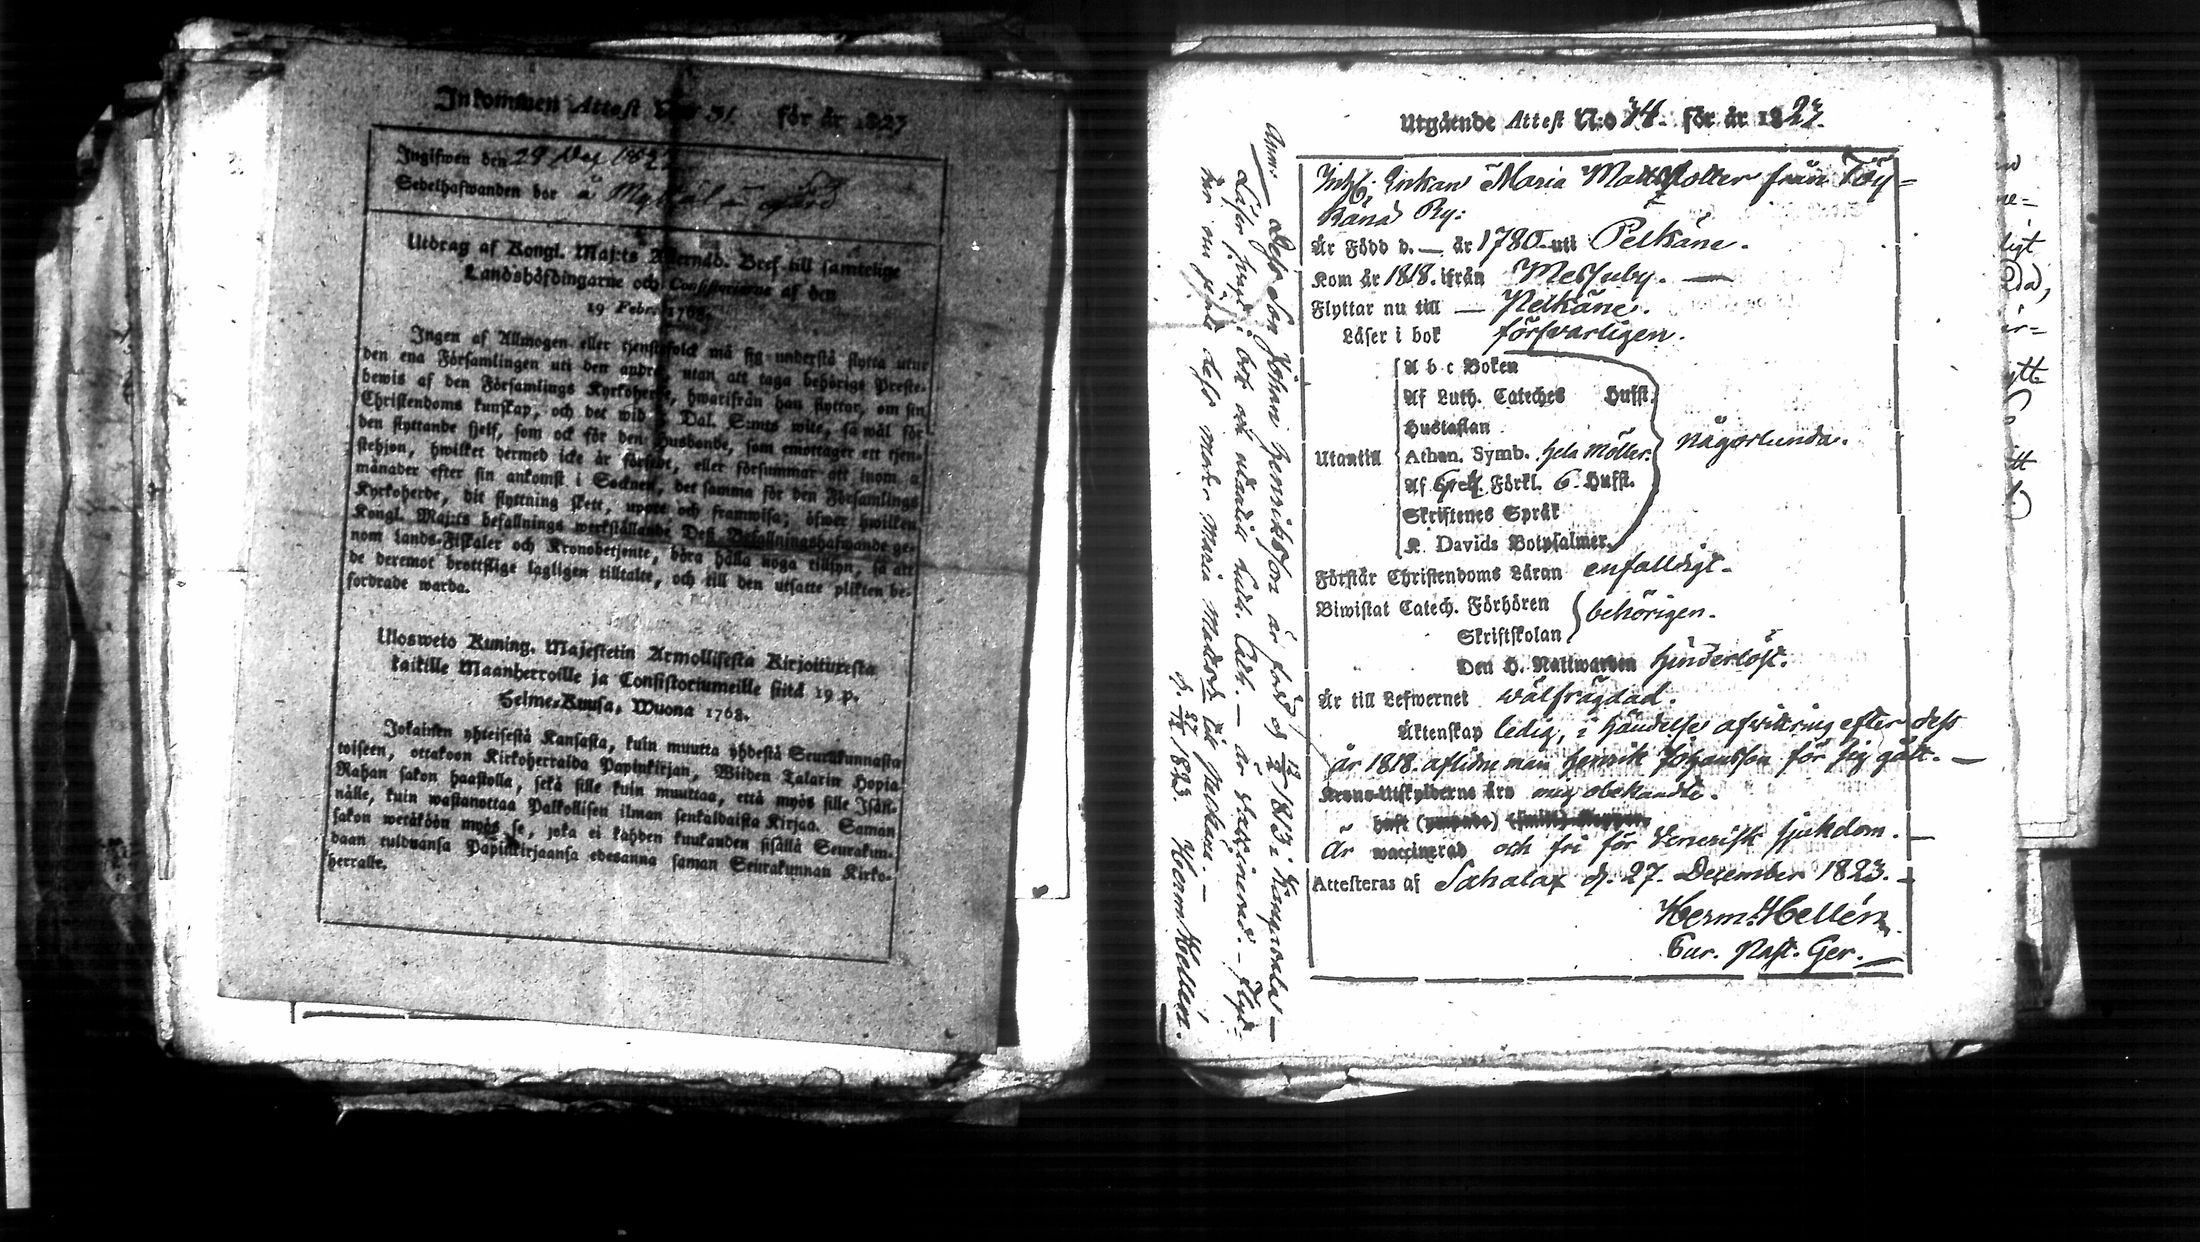 Inkommen Attest N:o 31. för år 1823
Ingifwen den 29 Dec 1823
Sedelhafwanden bor å
Utdrag af Kongl. Maj:ts Allernåd. Bref till samtelige
Landshöfdingarne och Consistorierne af den
19 Febr. 1768.
Ingen af Allmogen eller tjenstefolck må sig understå flytta utur
den ena Församlingen uti den andra, utan att taga behörigt Preste-
bewis af den Församlings Kyrkoherde, hwarifrån han flyttar, om sin
Christendoms kunskap, och det wid 5 Dal. S:mts wite, så wäl för
den flyttande sjelf, som ock för den Husbonde, som emottager ett tjen-
stehjon, hwilket dermed icke är försedt, eller försummar att inom 2
månader efter sin ankomst i Socknen, det samma för den Församlings
Kyrkoherde, dit flyttning skett, upote och framwisa; öfwer hwilken
Kongl. Maj:ts befallnings werkställande Deß Befallningshafwande ge-
nom Lands-Fiskaler och Kronobetjente, böra hålla noga tillsyn, så att
de deremot brottslige lagligen tilltalte, och till den utsatte plikten be-
fordrade warda.
Ulosweto Kuning. Majestetin Armollisesta Kirjoituxesta
kaikille Maanherroille ja Consistoriumeille siitä 19 p.
Helme-Kuusa, Wuona 1768.
Jokainen yhteisestä Kansasta, kuin muutta yhdestä Seurakunnasta
toiseen, ottakoon Kirkoherralda Papinkirjan, Wiiden Talarin Hopia
Rahan sakon haastolla, sekä sille kuin muuttaa, että myös sille Isän-
nälle, kuin wastanottaa Palkollisen ilman senkaldaista Kirjaa. Saman
sakon wetäköön myös se, joka ei kahden kuukauden sisällä Seurakun-
daan tulduansa Papinkirjaansa edesanna saman Seurakunnan Kirko-
herralle.
Utgående Attest N:o 74. för år 1823.
Inh. Enkan Maria Matts dotter från Töy-
känä By:
Är Född d. — år 1780 uti Pelkäne.
Kom år 1818. ifrån Messuby. —
Flyttar nu till — Pelkäne.
Läser i bok försvarligen.
Utantill
A b c Boken
Af Luth. Cateches Husst.
Hustaflan
Athan. Symb. hela Möller.
Af Förkl. 6. Husst.
Skriftenes Språk
K. Davids Botpsalmer.
någorlunda.
Förstår Christendoms Läran enfalldigt.
Biwistat Catech. Förhören
Skriftskolan
behörigen.
Den H. Nattwarden hinderlöst.
Är till Lefwernet wälfrägdad.
Äktenskap ledig, i händelse afvittring efter dess
år 1818. aflidne man Henrik Johansson för sig gått. —
Krono-Utskylderne äro mig obekandte.
haft
Är waccinerad och fri för Venerisk sjukdom. —
Attesteras af Sahalax d. 27. December 1823. -
Herm. Hellén
Cur. Past. Ger. —
Anm: Dess Son Johan Henriksson är född d. 12/2 1813 i Kangasala —
Läser svagt i bok och utantill Luth. Cath. — är vaccinerad. — Flyt-
ter nu med dess moder Maria Mattsd. till Pelkäne. —
d. 27/12 1823. Herm Hellén.